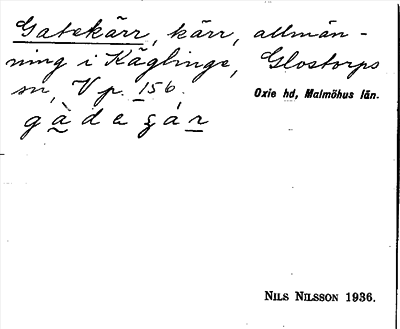 Gatekärr, kärr, allmän-
ning i Käglinge, Glostorps
sn, V p. 156.
Oxie hd, Malmöhus län.
gàdeʒár
NILS NILSSON 1936.